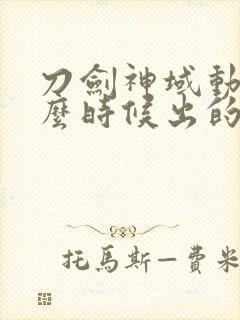 刀劍神域動
麼時候出的
托馬斯—費米